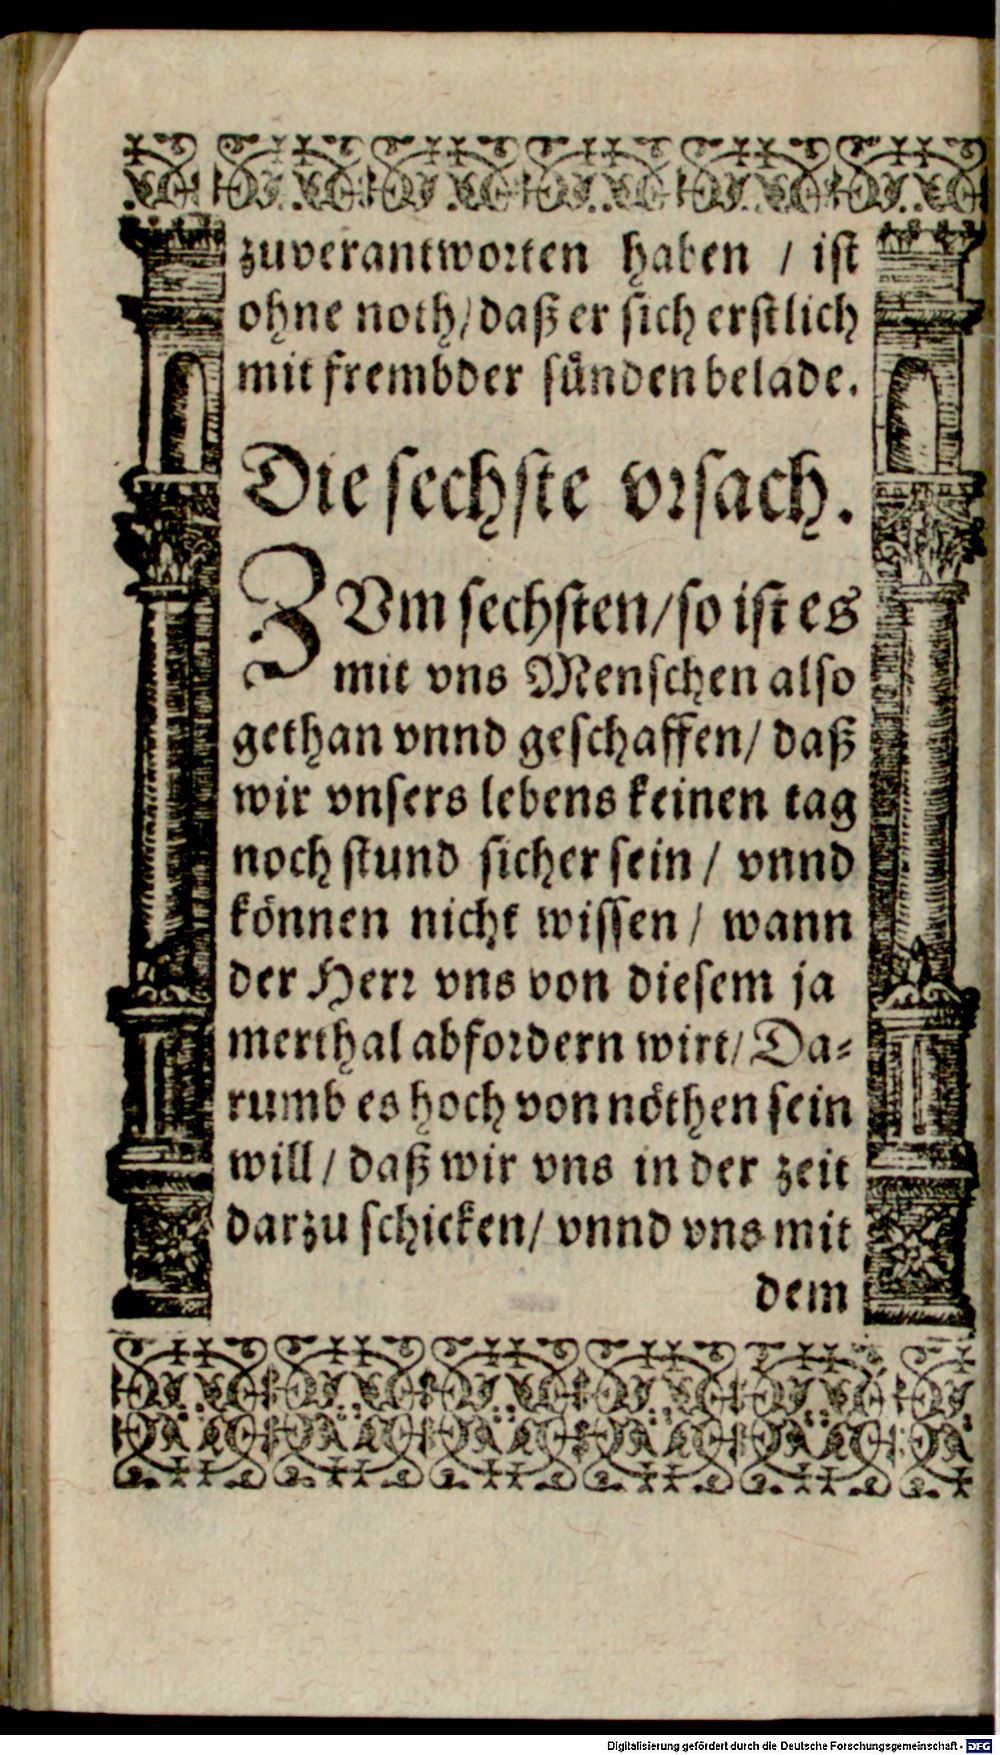 zuverantworten haben / ist
ohne noth / daß er sich erstlich
mit frembder sünden belade.
Die sechste vrsach.
ZVm sechsten / so ist es
mit vns Menschen also
gethan vnnd geschaffen / daß
wir vnsers lebens keinen tag
noch stund sicher sein / vnnd
können nicht wissen / wann
der Herr vns von diesem ja
merthal abfordern wirt / Da-
rumb es hoch von nöthen sein
will / daß wir vns in der zeit
darzu schicken / vnnd vns mit
dem
Digitalisierung gefördert durch die Deutsche Forschungsgemeinschaft - DFG